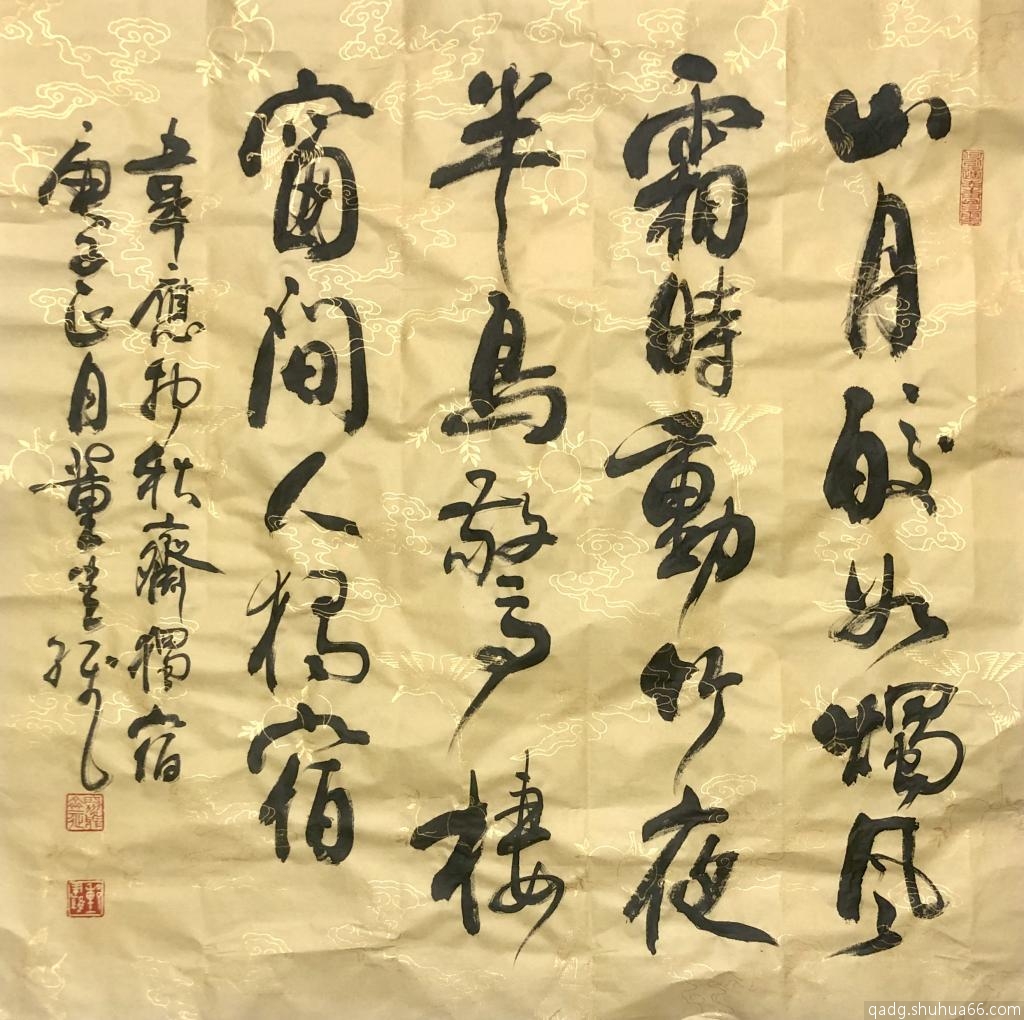 山月皎如燭風
霜時動竹夜
半鳥驚棲
窗間人獨宿
韋應物秋齋獨宿
庚子正月董堂
qadg.shuhua66.com